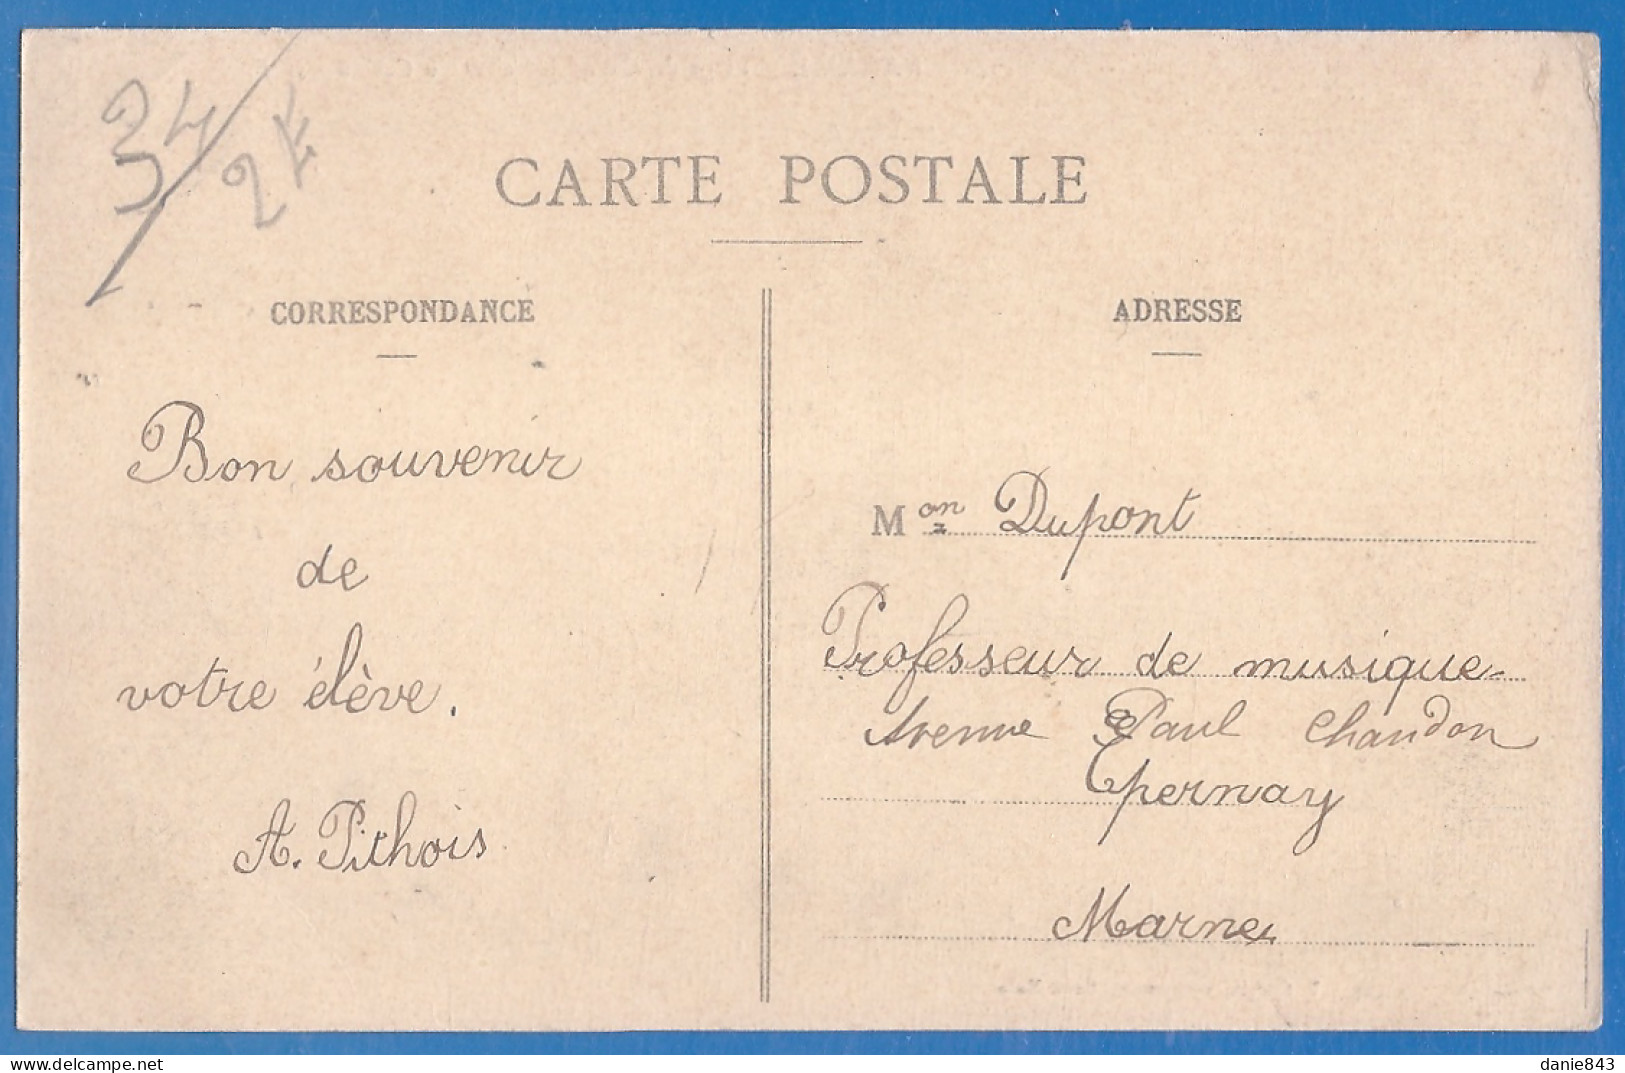 34
2€
CARTE POSTALE
CORRESPONDANCE
Bon souvenir
de
votre élève.
A. Pithois
ADRESSE
Mon Dupont
Professeur de musique
Avenue Paul Chandon
Epernay
Marne
delcampe.net
danie843